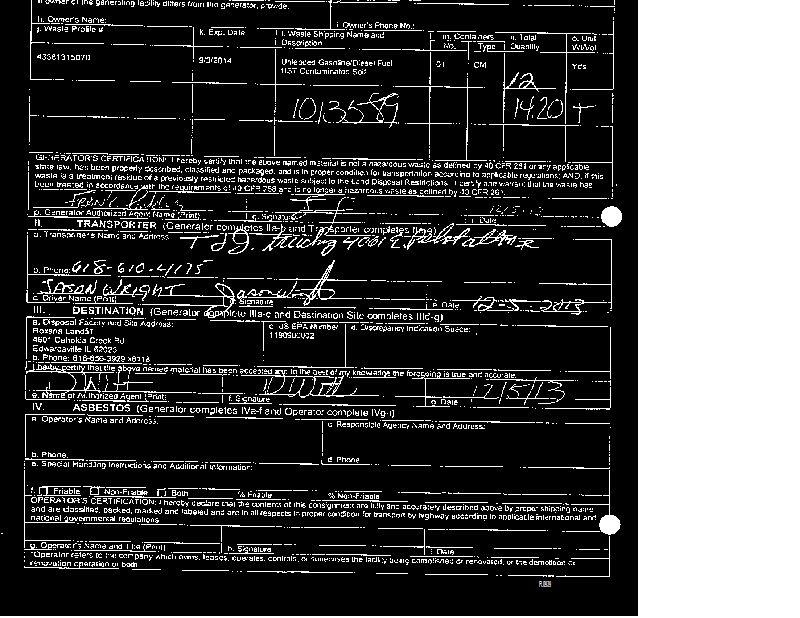 If owner of the generating facility differs from the generator, provide:
h. Owner's Name: i. Owner's Phone No.:
j. Waste Profile # k. Exp. Date l. Waste Shipping Name and Description m. Containers No. Type n. Total Quantity o. Unit Wt/Vol
9/3/2014 Unleaded Gasoline/Diesel Fuel UST Contaminated Soil 01 CM 12 Yds
1013589 14.20 T
GENERATOR'S CERTIFICATION: I hereby certify that the above named material is not a hazardous waste as defined by 40 CFR 261 or any applicable
state law, has been properly described, classified and packaged, and is in proper condition for transportation according to applicable regulations; AND, if this
waste is a treatment residue of a previously restricted hazardous waste subject to the Land Disposal Restrictions, I certify and warrant that the waste has
been treated in accordance with the requirements of 40 CFR 268 and is no longer a hazardous waste as defined by 40 CFR 261.
p. Generator Authorized Agent Name (Print) q. Signature r. Date
II. TRANSPORTER (Generator completes IIa-b and Transporter completes IIc-e)
a. Transporter's Name and Address:
b. Phone: 618-610-4175
JASON WRIGHT 12-5-2013
c. Driver Name (Print) d. Signature e. Date
III. DESTINATION (Generator complete IIIa-c and Destination Site completes IIId-g)
a. Disposal Facility and Site Address: c. US EPA Number d. Discrepancy Indication Space:
Roxana Landfill
4601 Cahokia Creek Rd
Edwardsville IL 62025
b. Phone:
I hereby certify that the above named material has been accepted and to the best of my knowledge the foregoing is true and accurate.
D Witt D Witt 12/5/13
e. Name of Authorized Agent (Print) f. Signature g. Date
IV. ASBESTOS (Generator completes IVa-f and Operator complete IVg-i)
a. Operator's Name and Address: c. Responsible Agency Name and Address:
b. Phone: d. Phone
e. Special Handling Instructions and Additional Information:
f. Friable Non-Friable Both % Friable % Non-Friable
OPERATOR'S CERTIFICATION: I hereby declare that the contents of this consignment are fully and accurately described above by proper shipping name
and are classified, packed, marked and labeled and are in all respects in proper condition for transport by highway according to applicable international and
national governmental regulations
g. Operator's Name and Title (Print) h. Signature i. Date
*Operator refers to the company which owns, leases, operates, controls, or supervises the facility being demolished or renovated, or the demolition or
renovation operation or both